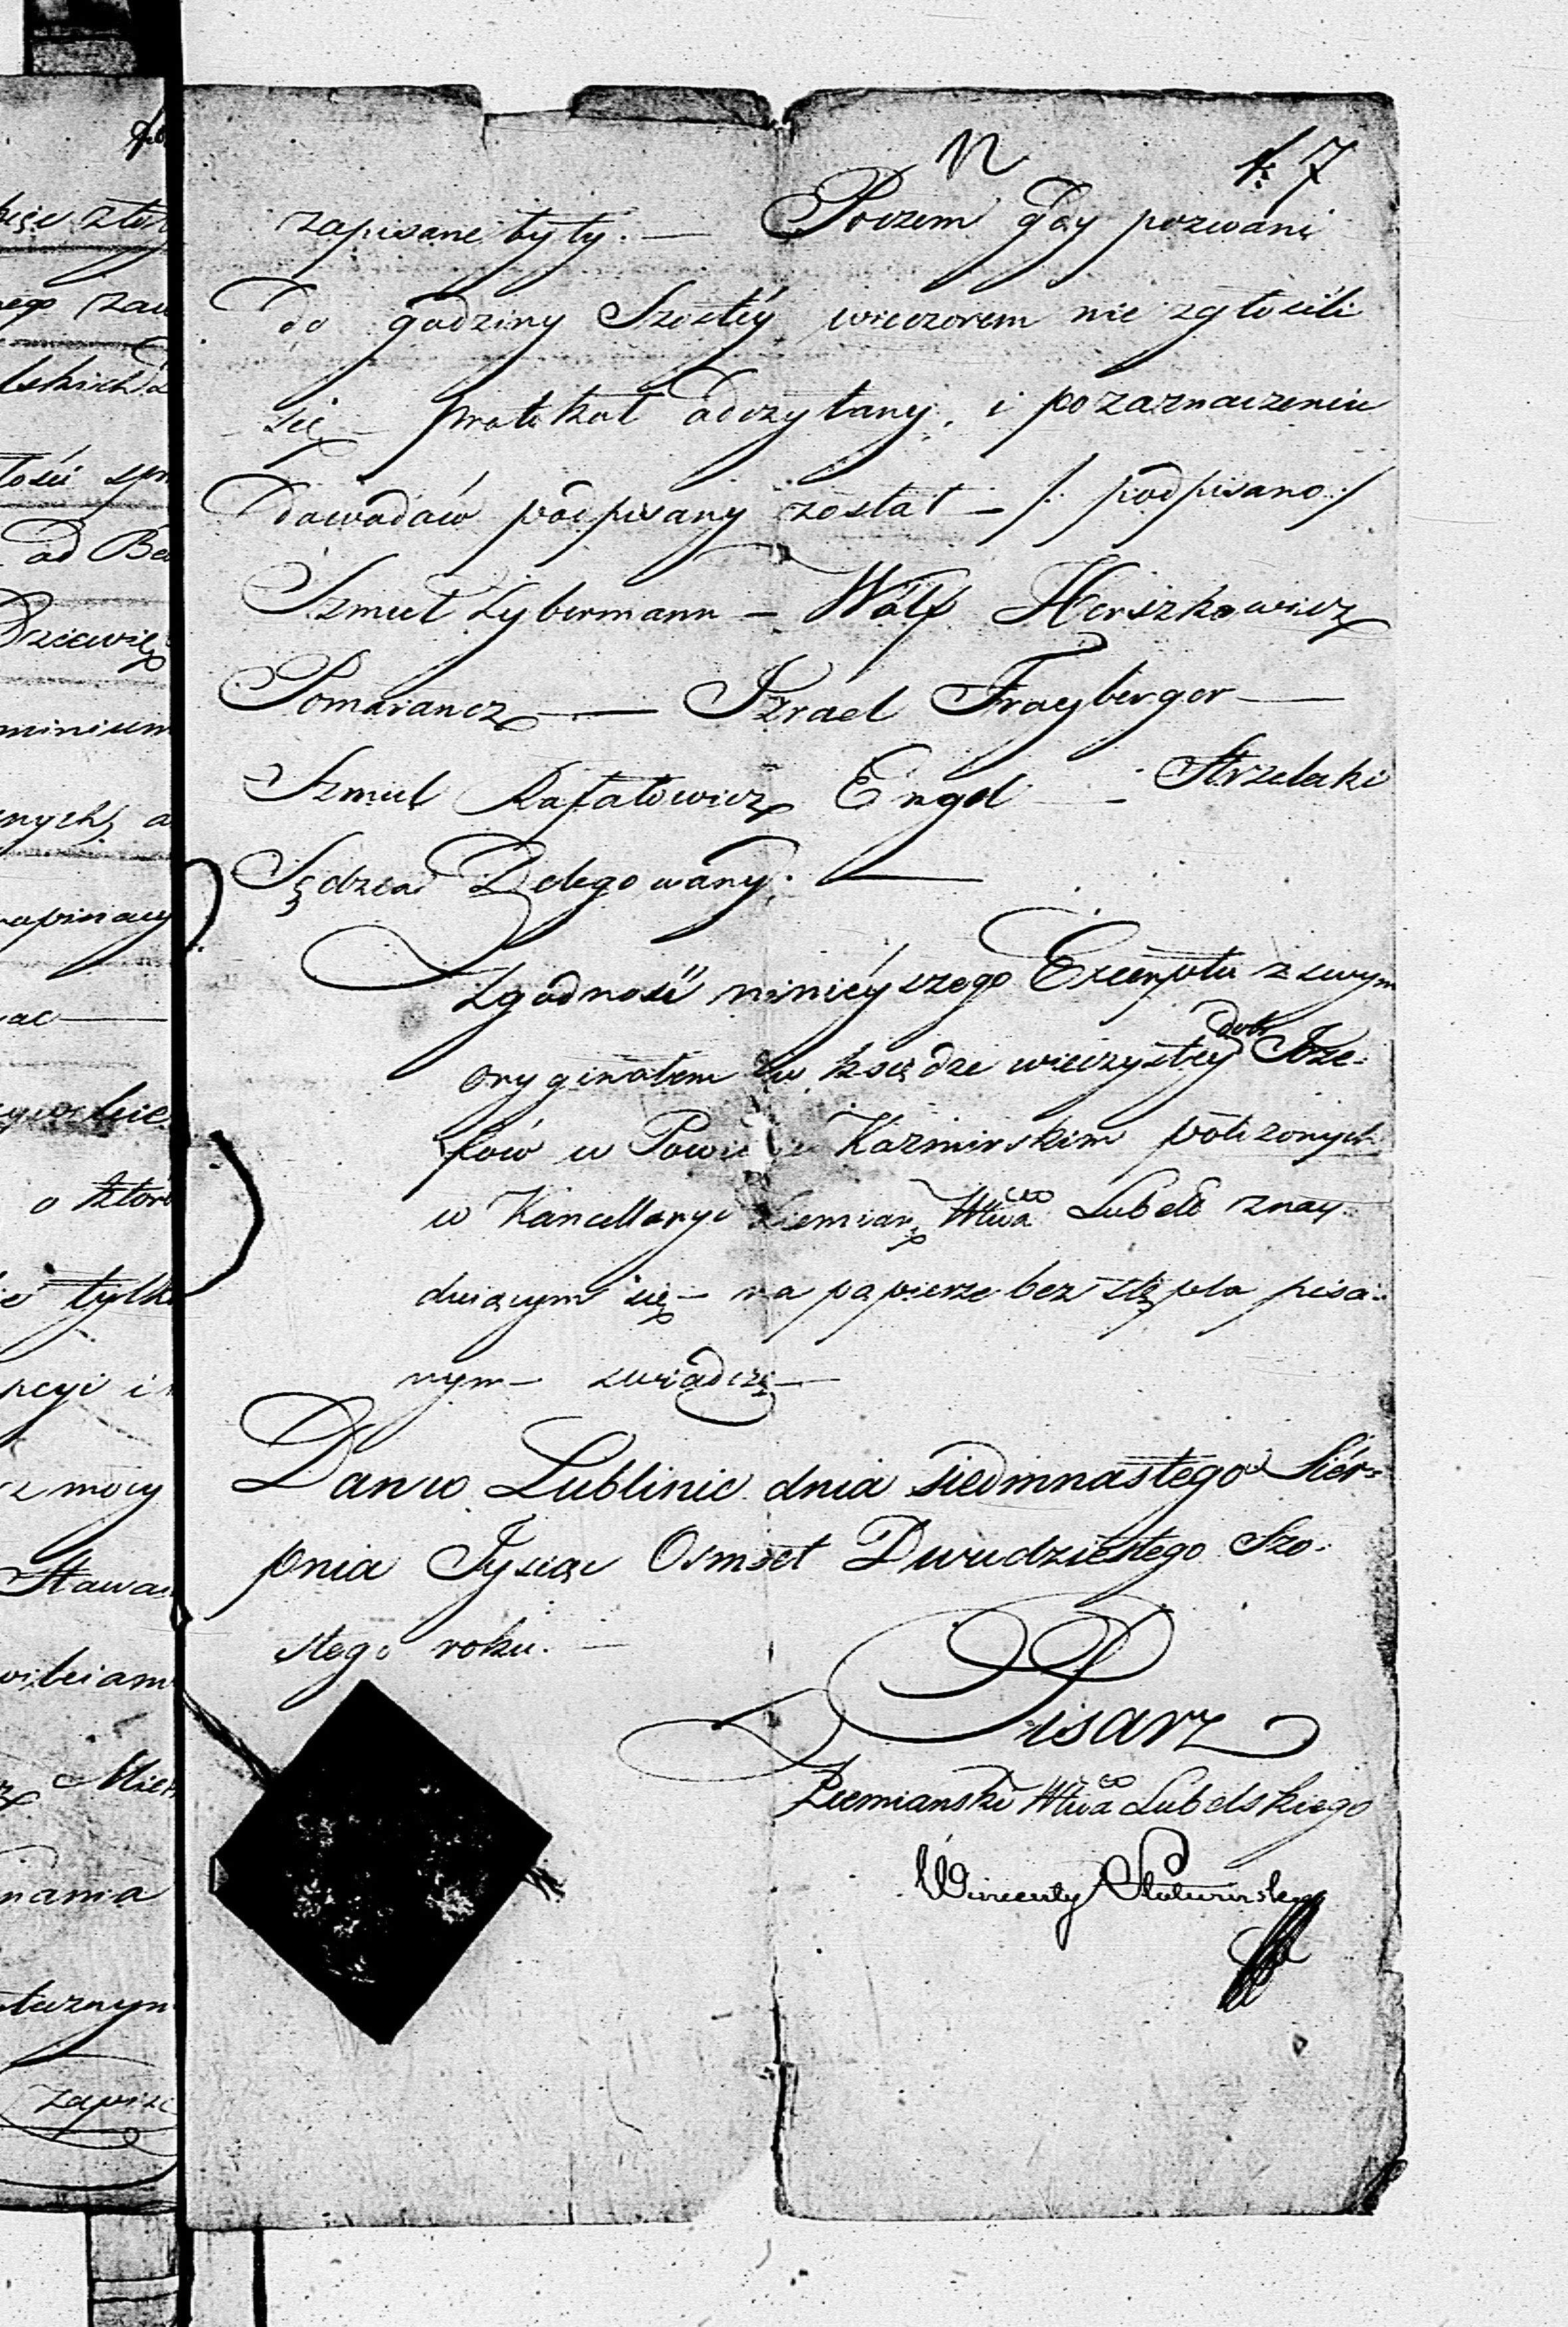 n k: 7
zapisane były. — Poczem gdy pozwani
do godziny Szóstéy wieczorem nie zgłosili
się — protokół odczytany, i po zaznaczeniu
dowodów podpisany został — /: podpisano :/
Szmul Lybermann — Wólf Herszkowicz
Pomarancz — Izrael Frayberger —
Szmul Rafałowicz Engel — Strzelecki
Sędzia Delegowany. —
Zgodność ninieyszego Excerptu z swym
oryginałem w księdze wieczystey dobr Józe-
fów w Powiecie Kazmirskim położonych
w Kancellaryi Ziemiańs. Wtwa Lubels znay-
duiącym się — na papierze bez stępla pisa-
nym — swiadczę —
Dan w Lublinie dnia siedmnastego Sier-
pnia Tysiąc Osmset Dwudziestego Szo-
stego roku. —
Pisarz
Ziemianski Wtwa Lubelskiego
Wincenty
żyć złoż
nego zaw
lskich
łości spr
od Ber
minium
nych, a
ać —
o któr
tylko
pcyi i
z mocy
Stawa
nania
tecznym
zapisa